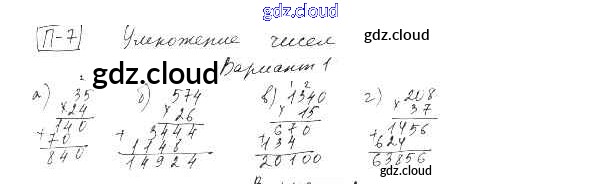 gdz.cloud
П-7 Умножение чисел gdz.cloud
gdz.cloud Вариант 1
а) 35 б) 574 в) 1340 г) 208
× 24 × 26 × 15 × 37
140 + 3444 670 1456
+ 70 1148 + 134 + 624
840 14924 20100 63856
gdz.cloud